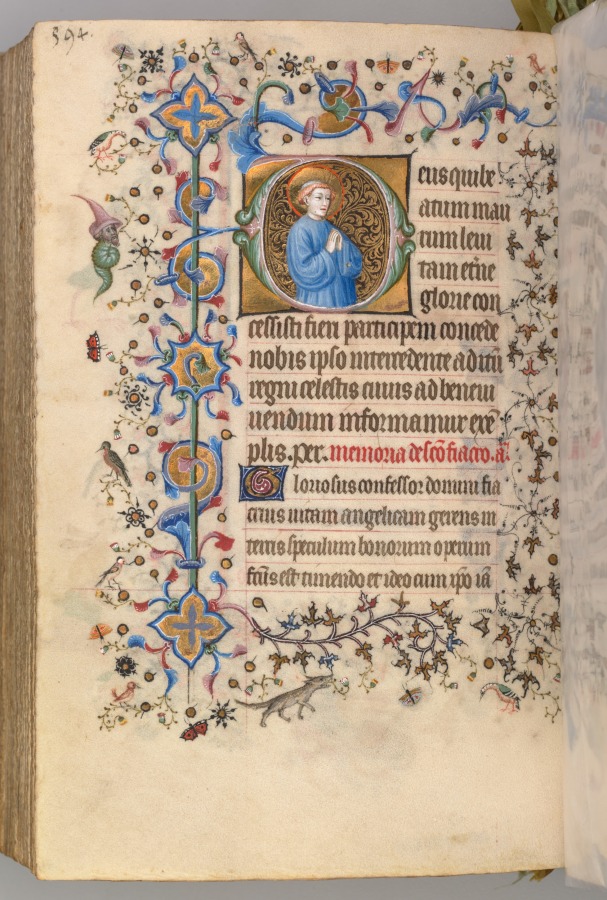 394.
Deus qui be
atum mau
rum leui
tam et̃ne
glorie con
cessisti fieri participem concede
nobis ipso intercedente aditũ
regni celestis cuius ad beneui
uendum informamur exẽ
plis. per. memoria de sc̃o fiacro. añ.
Gloriosus confessor domini fia
crius uitam angelicam gerens in
terris speculum bonorum operum
fc̃us est timendo et ideo cum xp̃o iã